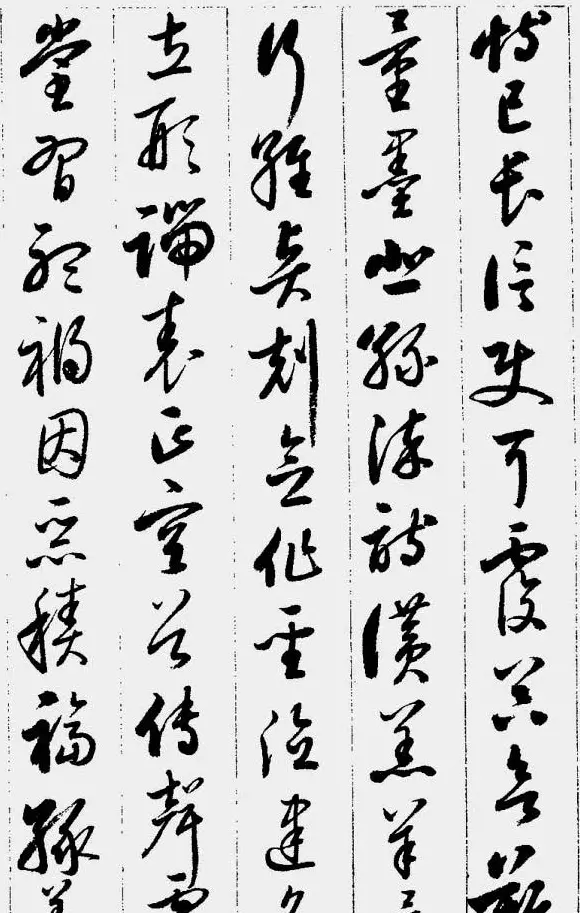 恃己長信使可覆器欲難
量墨悲絲染詩讚羔羊景
行維賢剋念作聖德建名
立形端表正空谷傳聲虛
堂習聽禍因惡積福緣善